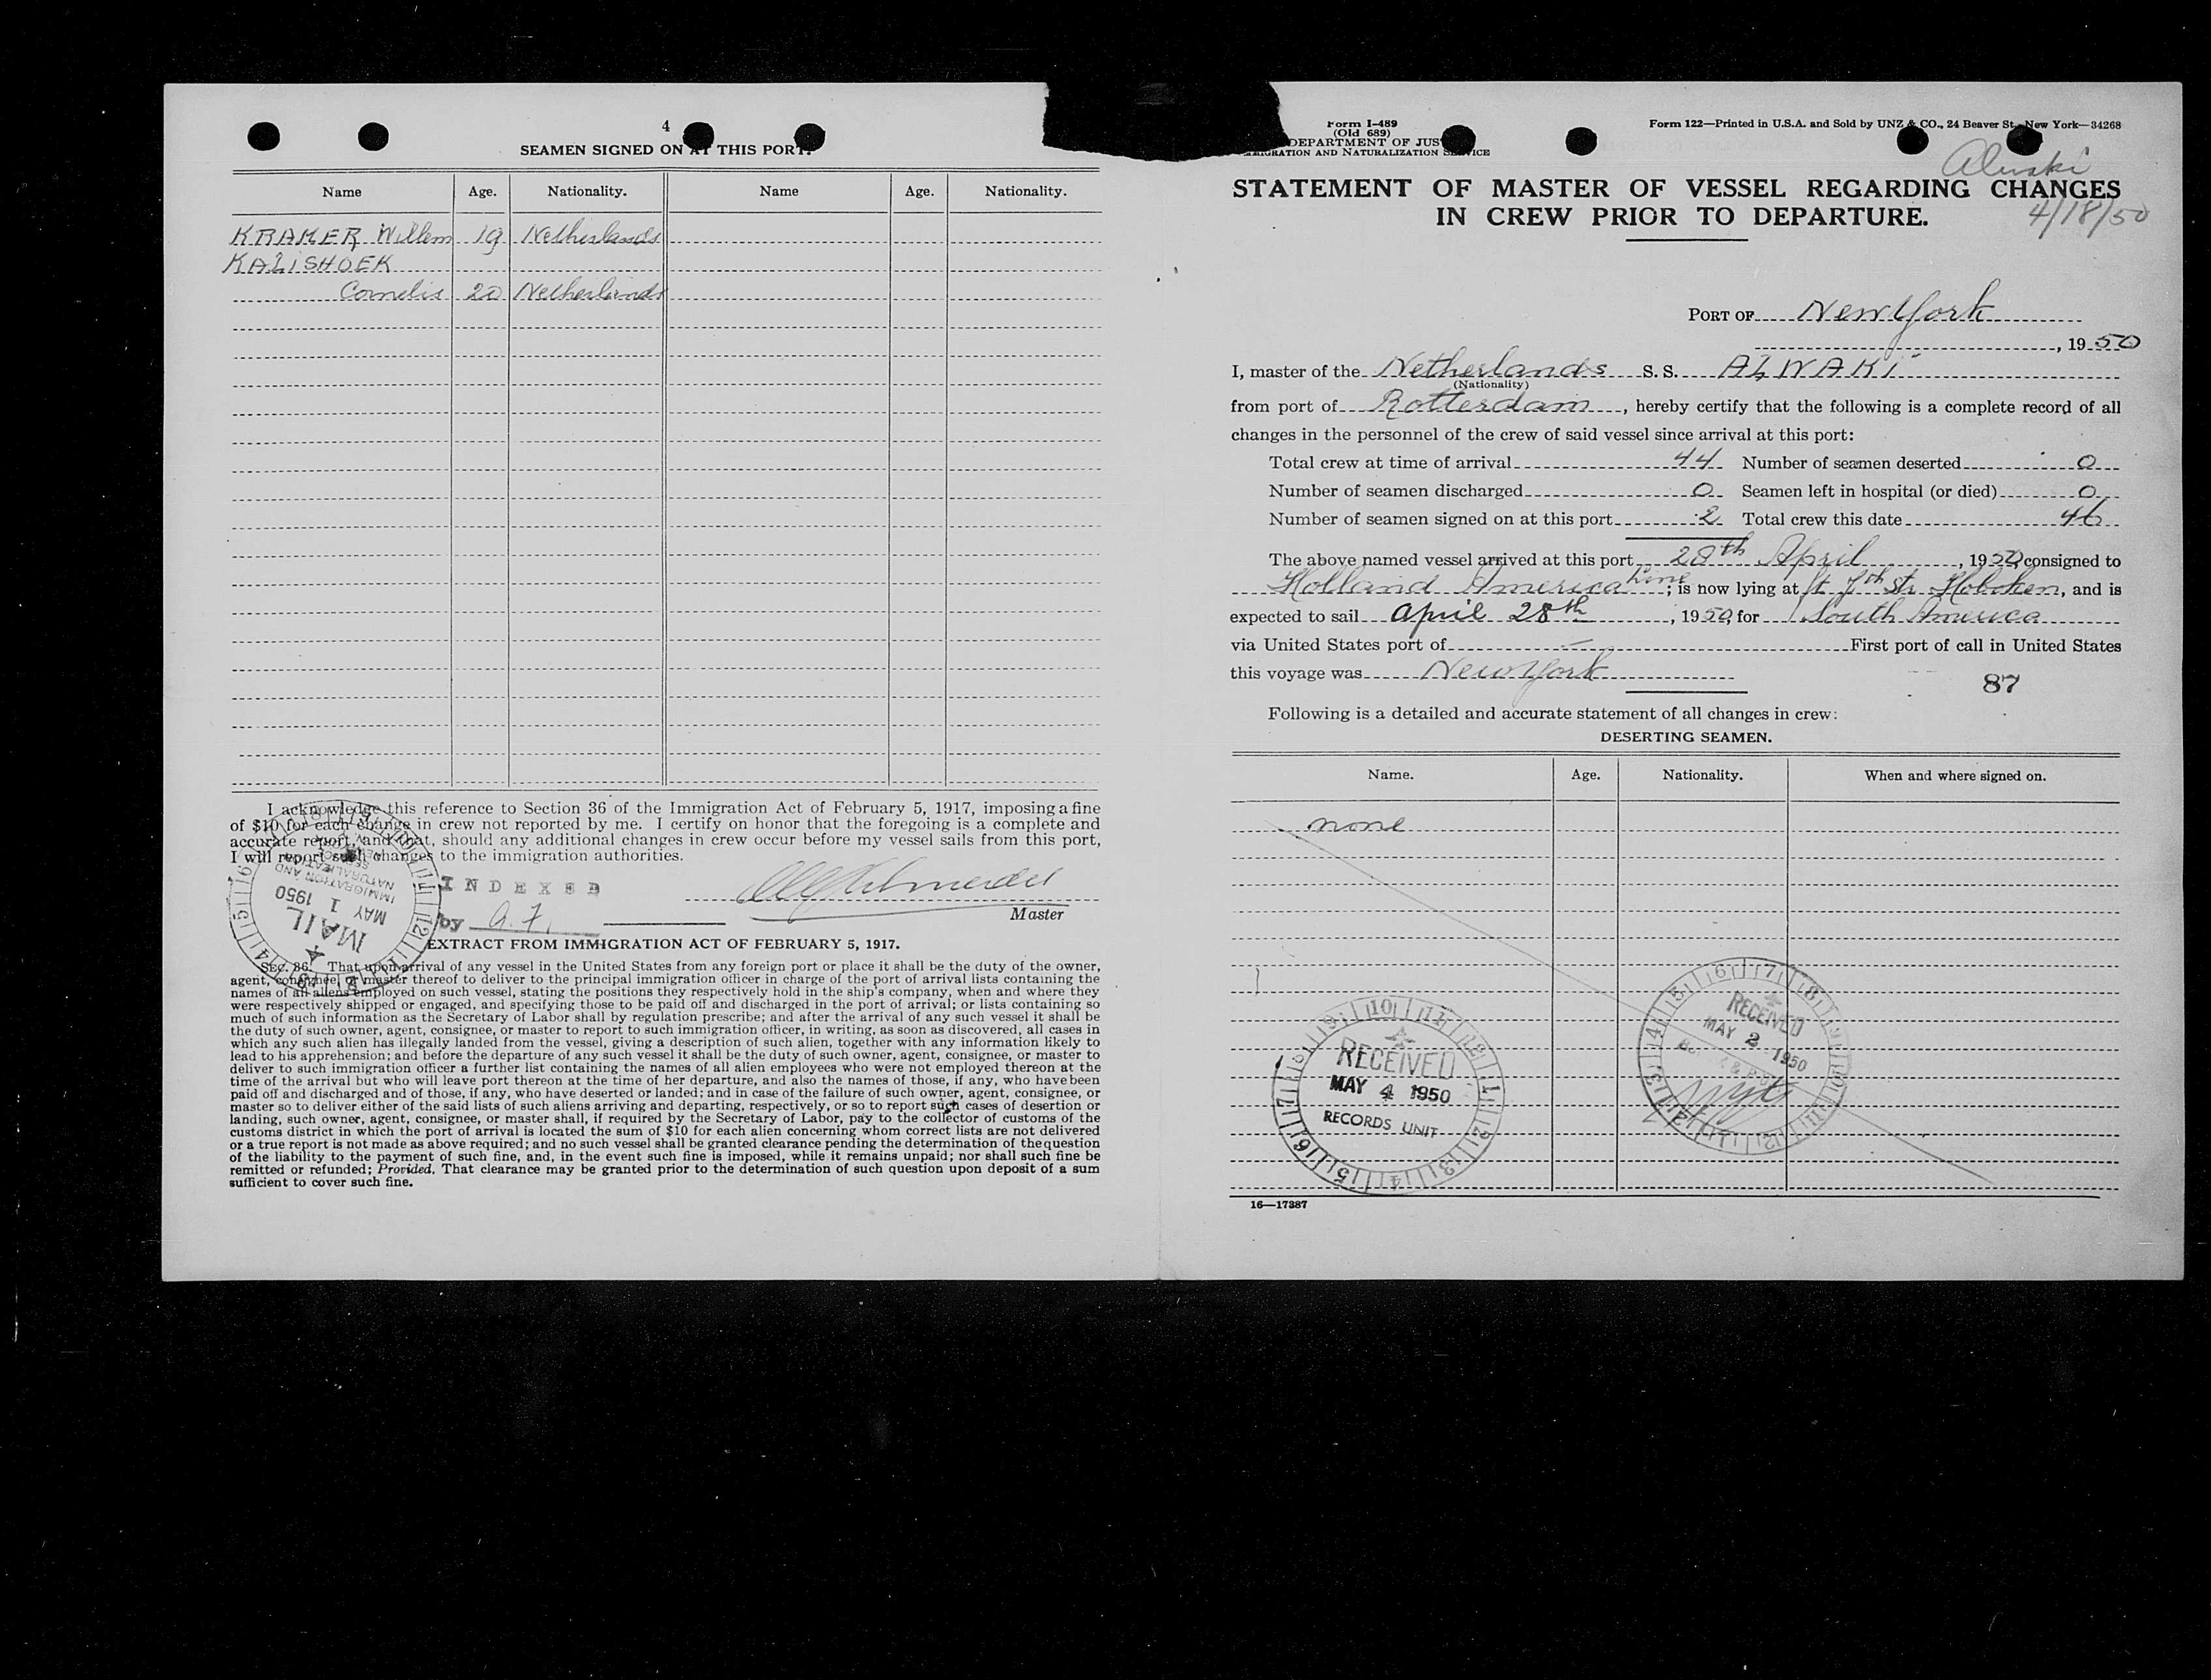 4
SEAMEN SIGNED ON AT THIS PORT.
Name Age. Nationality. Name Age. Nationality.
KRAMER Willem 19 Netherlands
KALISHOEK
Cornelis 20 Netherlands
I acknowledge this reference to Section 36 of the Immigration Act of February 5, 1917, imposing a fine
of $10 for each change in crew not reported by me. I certify on honor that the foregoing is a complete and
accurate report, and that, should any additional changes in crew occur before my vessel sails from this port,
I will report such changes to the immigration authorities.
IMMIGRATION AND
NATURALIZATION
MAY 1 1950
MAIL
INDEXED
by a.f.
Master
EXTRACT FROM IMMIGRATION ACT OF FEBRUARY 5, 1917.
SEC. 36. That upon arrival of any vessel in the United States from any foreign port or place it shall be the duty of the owner,
agent, consignee, or master thereof to deliver to the principal immigration officer in charge of the port of arrival lists containing the
names of all aliens employed on such vessel, stating the positions they respectively hold in the ship's company, when and where they
were respectively shipped or engaged, and specifying those to be paid off and discharged in the port of arrival; or lists containing so
much of such information as the Secretary of Labor shall by regulation prescribe; and after the arrival of any such vessel it shall be
the duty of such owner, agent, consignee, or master to report to such immigration officer, in writing, as soon as discovered, all cases in
which any such alien has illegally landed from the vessel, giving a description of such alien, together with any information likely to
lead to his apprehension; and before the departure of any such vessel it shall be the duty of such owner, agent, consignee, or master to
deliver to such immigration officer a further list containing the names of all alien employees who were not employed thereon at the
time of the arrival but who will leave port thereon at the time of her departure, and also the names of those, if any, who have been
paid off and discharged and of those, if any, who have deserted or landed; and in case of the failure of such owner, agent, consignee, or
master so to deliver either of the said lists of such aliens arriving and departing, respectively, or so to report such cases of desertion or
landing, such owner, agent, consignee, or master shall, if required by the Secretary of Labor, pay to the collector of customs of the
customs district in which the port of arrival is located the sum of $10 for each alien concerning whom correct lists are not delivered
or a true report is not made as above required; and no such vessel shall be granted clearance pending the determination of the question
of the liability to the payment of such fine, and, in the event such fine is imposed, while it remains unpaid; nor shall such fine be
remitted or refunded; Provided, That clearance may be granted prior to the determination of such question upon deposit of a sum
sufficient to cover such fine.
Form I-489
(Old 689)
DEPARTMENT OF JUS
IMMIGRATION AND NATURALIZATION SERVICE
Form 122—Printed in U.S.A. and Sold by UNZ & CO., 24 Beaver St., New York—34268
STATEMENT OF MASTER OF VESSEL REGARDING CHANGES
IN CREW PRIOR TO DEPARTURE.
4/18/50
PORT OF New York
, 1950
I, master of the Netherlands S. S. ALWAKI
(Nationality)
from port of Rotterdam, hereby certify that the following is a complete record of all
changes in the personnel of the crew of said vessel since arrival at this port:
Total crew at time of arrival 44 Number of seamen deserted 0
Number of seamen discharged 0 Seamen left in hospital (or died) 0
Number of seamen signed on at this port 2 Total crew this date 46
The above named vessel arrived at this port 20th April, 1950, consigned to
Holland America Line; is now lying at ft 7th Str Hoboken, and is
expected to sail April 28th, 1950, for South America
via United States port of — First port of call in United States
this voyage was New York
87
Following is a detailed and accurate statement of all changes in crew:
DESERTING SEAMEN.
Name. Age. Nationality. When and where signed on.
none
RECEIVED
MAY 2 1950
RECEIVED
MAY 4 1950
RECORDS UNIT
16—17387